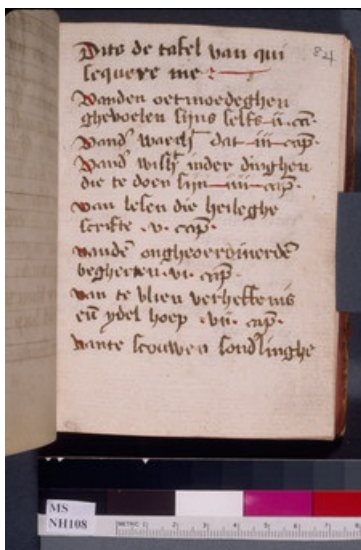 84
Dits de tafel van qui
sequere me
Vanden oetmoedeghen
ghevoelen sijns selfs ·ii· ca̅·
Vand̕ waerh̕ dat ·iii· cap̅·
Vand̕ wish̕ inder dinghen
die te doen sijn ·iiii· cap̅·
van lesen die heileghe
scrifte ·v· cap̅·
vande̅ ongheoerdineerde̅
begherten ·vi· cap̅·
van te vlien verheffenis
en̅ ydel hoep ·vii· cap̅·
vante scouwen sondlinghe
MS
NH108
METRIC 1 2 3 4 5 6 7 8